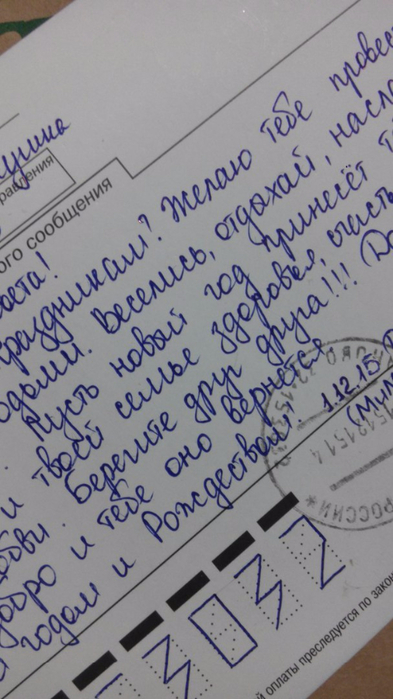 ушка
равления
ого сообщения
вета!
праздникам? Желаю тебе провес
одами. Веселись, отдыхай, насла
Пусть новый год принесёт т
и твоей семье здоровья, счасть
бви. Берегите друг друга!!! (До
добро и тебе оно вернётся
годом и Рождеством! 1.12.15
(Мил
РОССИИ*
й оплаты преследуется по зако